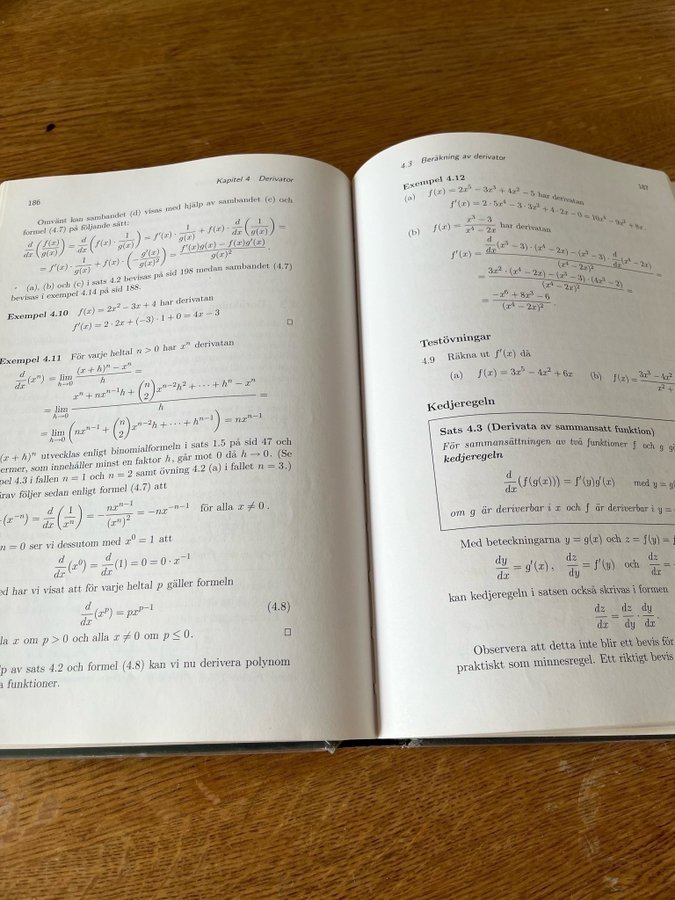 186
Kapitel 4 Derivator
Omvänt kan sambandet (d) visas med hjälp av sambandet (c) och
formel (4.7) på följande sätt:
d/dx (f(x)/g(x)) = d/dx (f(x) · 1/g(x)) = f'(x) · 1/g(x) + f(x) · d/dx (1/g(x)) =
= f'(x) · 1/g(x) + f(x) · (−g'(x)/g(x)²) = (f'(x)g(x) − f(x)g'(x))/g(x)² .
(a), (b) och (c) i sats 4.2 bevisas på sid 198 medan sambandet (4.7)
bevisas i exempel 4.14 på sid 188.
Exempel 4.10 f(x) = 2x² − 3x + 4 har derivatan
f'(x) = 2 · 2x + (−3) · 1 + 0 = 4x − 3
□
Exempel 4.11 För varje heltal n > 0 har xⁿ derivatan
d/dx (xⁿ) = lim h→0 ((x + h)ⁿ − xⁿ)/h =
= lim h→0 (xⁿ + nxⁿ⁻¹h + (n 2)xⁿ⁻²h² + ··· + hⁿ − xⁿ)/h =
= lim h→0 (nxⁿ⁻¹ + (n 2)xⁿ⁻²h + ··· + hⁿ⁻¹) = nxⁿ⁻¹
(x + h)ⁿ utvecklas enligt binomialformeln i sats 1.5 på sid 47 och
ermer, som innehåller minst en faktor h, går mot 0 då h → 0. (Se
pel 4.3 i fallen n = 1 och n = 2 samt övning 4.2 (a) i fallet n = 3.)
rav följer sedan enligt formel (4.7) att
(x⁻ⁿ) = d/dx (1/xⁿ) = −nxⁿ⁻¹/(xⁿ)² = −nx⁻ⁿ⁻¹ för alla x ≠ 0 .
n = 0 ser vi dessutom med x⁰ = 1 att
d/dx (x⁰) = d/dx (1) = 0 = 0 · x⁻¹
ed har vi visat att för varje heltal p gäller formeln
d/dx (xᵖ) = pxᵖ⁻¹ (4.8)
la x om p > 0 och alla x ≠ 0 om p ≤ 0. □
lp av sats 4.2 och formel (4.8) kan vi nu derivera polynom
a funktioner.
4.3 Beräkning av derivator
187
Exempel 4.12
(a) f(x) = 2x⁵ − 3x³ + 4x² − 5 har derivatan
f'(x) = 2 · 5x⁴ − 3 · 3x² + 4 · 2x − 0 = 10x⁴ − 9x² + 8x .
(b) f(x) = (x³ − 3)/(x⁴ − 2x) har derivatan
f'(x) = (d/dx (x³ − 3) · (x⁴ − 2x) − (x³ − 3) · d/dx (x⁴ − 2x))/(x⁴ − 2x)² =
= (3x² · (x⁴ − 2x) − (x³ − 3) · (4x³ − 2))/(x⁴ − 2x)² =
= (−x⁶ + 8x³ − 6)/(x⁴ − 2x)² .
Testövningar
4.9 Räkna ut f'(x) då
(a) f(x) = 3x⁵ − 4x² + 6x (b) f(x) = (3x⁵ − 4x²)/(x² +
Kedjeregeln
Sats 4.3 (Derivata av sammansatt funktion)
För sammansättningen av två funktioner f och g
kedjeregeln
d/dx (f(g(x))) = f'(y)g'(x) med y = g(
om g är deriverbar i x och f är deriverbar i y =
Med beteckningarna y = g(x) och z = f(y) =
dy/dx = g'(x) , dz/dy = f'(y) och dz/dx =
kan kedjeregeln i satsen också skrivas i formen
dz/dx = dz/dy · dy/dx .
Observera att detta inte blir ett bevis för
praktiskt som minnesregel. Ett riktigt bevis